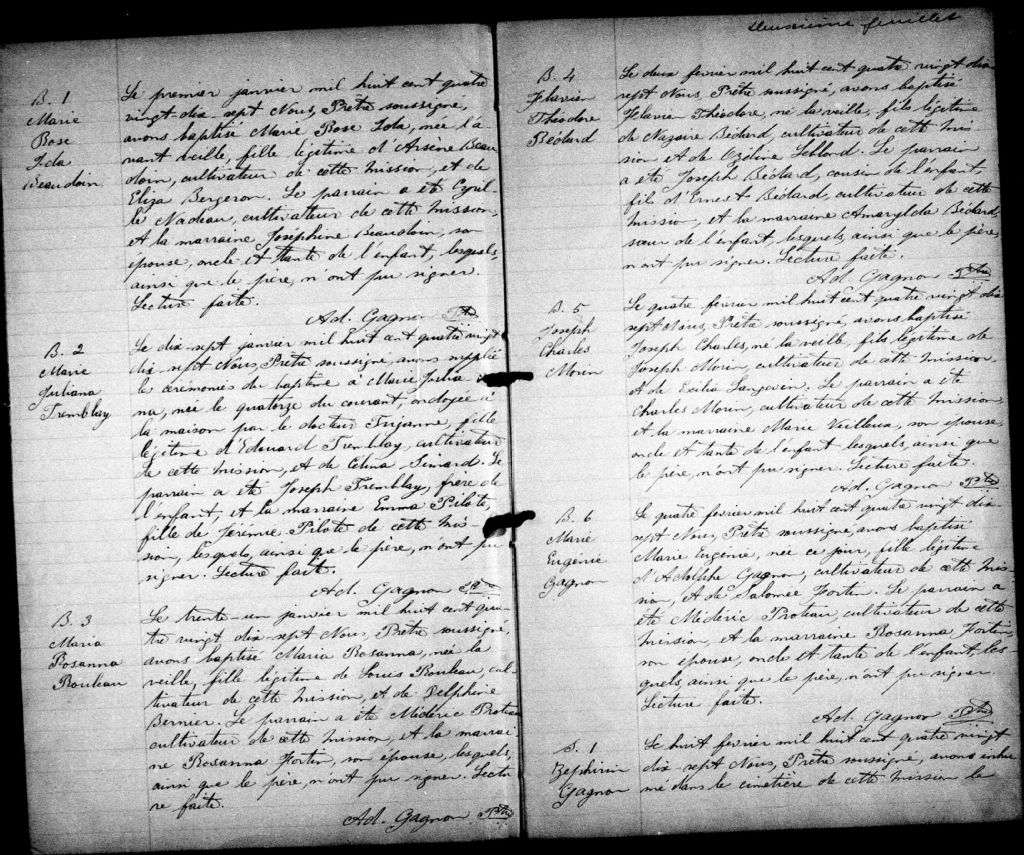 B. 1
Marie
Rose
Lda
Beaudoin
Le premier janvier mil huit cent quatre
vingt-dix-sept Nous, Prêtre soussigné,
avons baptisé Marie Rose Lda, née l'a
vant veille, fille légitime d'Arsène Beau
doin, cultivateur de cette mission, et de
Eliza Bergeron. Le parrain a été Cyril
le Nadeau, cultivateur de cette mission,
et la marraine Joséphine Beaudoin, son
épouse, oncle et tante de l'enfant, lesquels,
ainsi que le père, n'ont pu signer.
Lecture faite.
Ad. Gagnon Ptre
B. 2
Marie
Juliana
Tremblay
Le dix-sept janvier mil huit cent quatre vingt
dix sept Nous, Prêtre soussigné, avons supplié
les cérémonies du baptême à Marie Julia
na, née le quatorze du courant, ondoyée à
la maison par le docteur, fille
légitime d'Edouard Tremblay, cultivateur
de cette mission, et de Célina Simard. Le
parrain a été Joseph Tremblay, frère de
l'enfant, et la marraine Emma Pilote,
fille de Jérémie Pilote de cette mis-
sion, lesquels, ainsi que le père, n'ont pu
signer. Lecture faite.
Ad. Gagnon Ptre
B. 3
Maria
Rosanna
Bouleau
Le trente-un janvier mil huit cent qua-
tre vingt dix-sept Nous, Prêtre soussigné,
avons baptisé Maria Rosanna, née la
veille, fille légitime de Louis Bouleau, cul-
tivateur de cette mission, et de Delphine
Bernier. Le parrain a été Médéric Proteau
cultivateur de cette mission, et la marrai
ne Rosanna Fortin, son épouse, lesquels,
ainsi que le père, n'ont pu signer. Lectu
re faite.
Ad. Gagnon Ptre
deuxième feuillet
B. 4
Flavien
Théodore
Bédard
Le deux février mil huit cent quatre vingt dix
sept Nous, Prêtre soussigné, avons baptisé
Flavien Théodore, né la veille, fils légitime
de Nazaire Bédard, cultivateur de cette mis-
sion et de Ozéline Leblond. Le parrain
a été Joseph Bédard, cousin de l'enfant,
fils d'Ernest Bédard, cultivateur de cette
mission, et la marraine Amarylda Bédard
sœur de l'enfant, lesquels, ainsi que le père,
n'ont pu signer. Lecture faite.
Ad. Gagnon Ptre
B. 5
Joseph
Charles
Morin
Le quatre février mil huit cent quatre vingt dix
sept Nous, Prêtre soussigné, avons baptisé
Joseph Charles, né la veille, fils légitime de
Joseph Morin, cultivateur de cette mission,
et de Exilia Langevin. Le parrain a été
Charles Morin, cultivateur de cette mission
et la marraine Marie Veilleux, son épouse,
oncle et tante de l'enfant lesquels, ainsi que
le père, n'ont pu signer. Lecture faite.
Ad. Gagnon Ptre
B. 6
Marie
Eugénie
Gagnon
Le quatre février mil huit cent quatre vingt dix-
sept Nous, Prêtre soussigné, avons baptisé
Marie Eugénie, née ce jour, fille légitime
d'Adolphe Gagnon, cultivateur de cette mis-
sion, et de Salomée Fortin. Le parrain a
été Médéric Proteau, cultivateur de cette
mission, et la marraine Rosanna Fortin,
son épouse, oncle et tante de l'enfant, les-
quels, ainsi que le père, n'ont pu signer.
Lecture faite.
Ad. Gagnon Ptre
S. 1
Zéphirin
Gagnon
Le huit février mil huit cent quatre vingt
dix-sept Nous, Prêtre soussigné, avons inhu
mé dans le cimetière de cette mission le